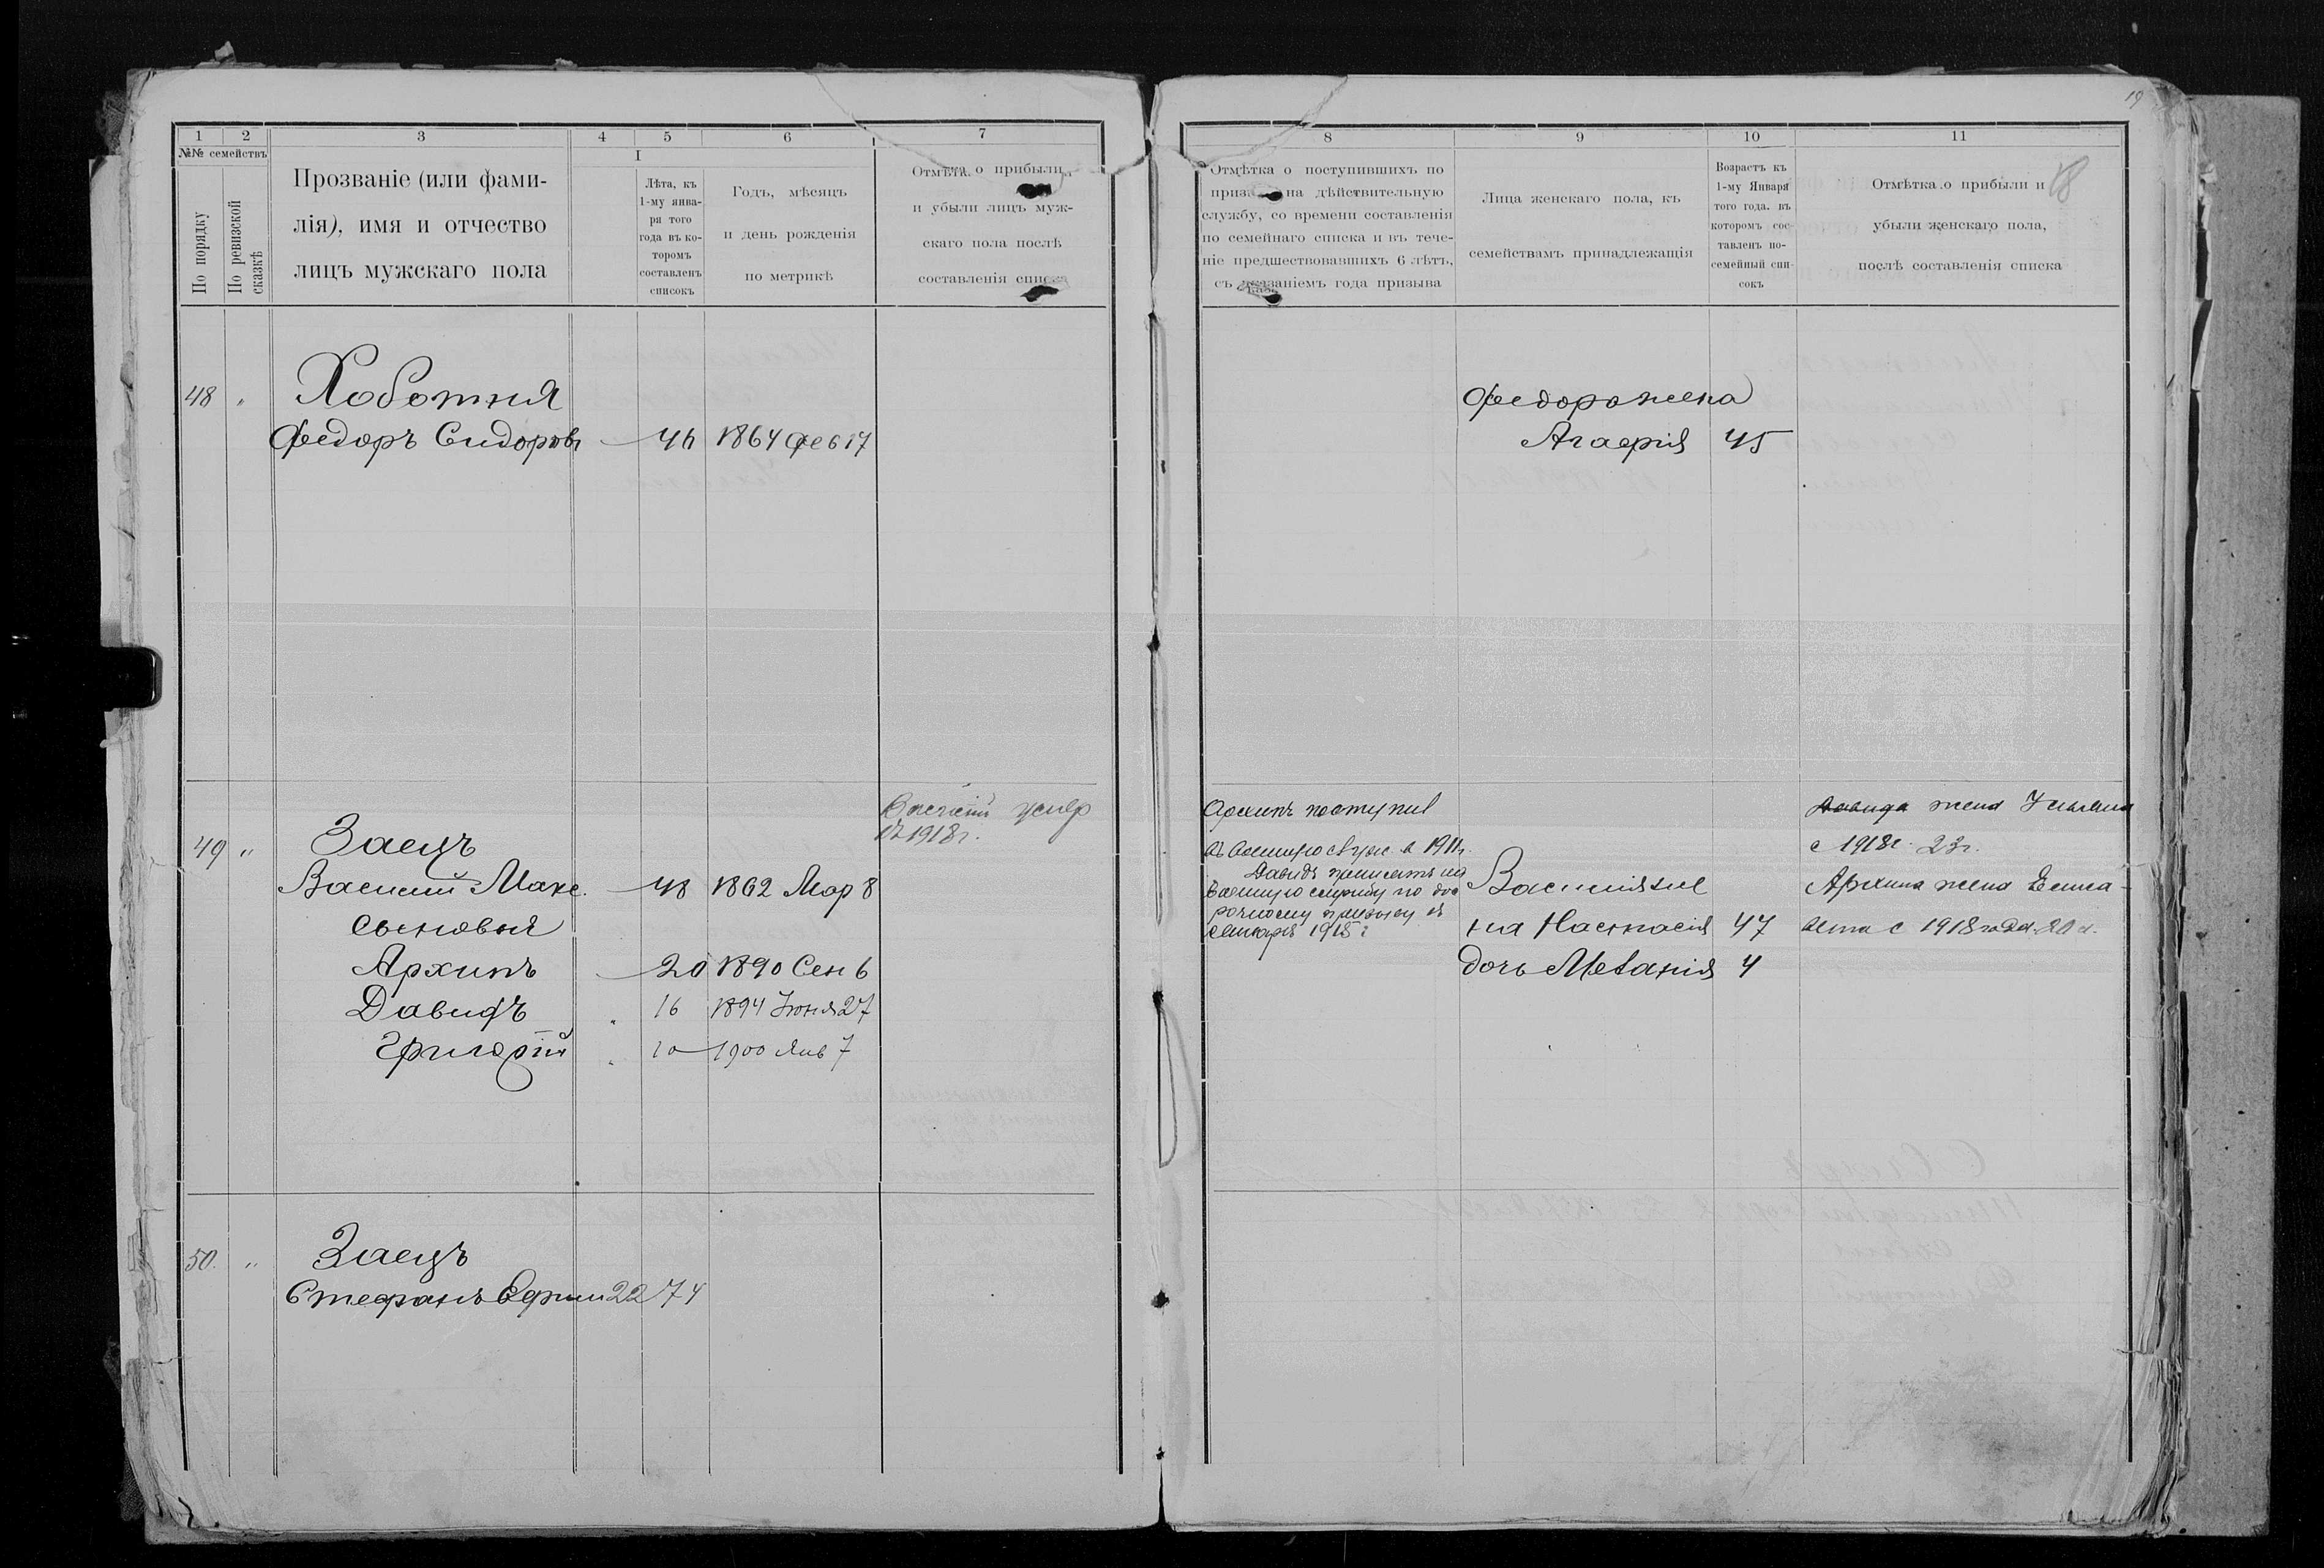 19
18
1
2
3
4
5
6
7
№№ семействъ
По порядку
По ревизской сказкѣ
Прозваніе (или фами-
лія), имя и отчество
лицъ мужскаго пола
I
Лѣта, къ
1-му янва-
ря того
года въ ко-
торомъ
составленъ
списокъ
Годъ, мѣсяцъ
и день рожденія
по метрикѣ
Отмѣта о прибыли
и убыли лицъ муж-
скаго пола послѣ
составленія списка
48 „ Хоботня
Федоръ Сидоровъ 46 1864 Фев 17
Василій умер
въ 1918 г.
49 „ Заецъ
Василий Макс. 48 1862 Мар 8
сыновья
Архипъ 20 1890 Сен 6
Давидъ „ 16 1894 Іюня 27
Григорій „ 10 1900 Янв 7
50. „ Заецъ
Стефанъ Ефим 22 74
8
9
10
11
Отмѣтка о поступившихъ по
призыву на дѣйствительную
службу, со времени составленія
по семейнаго списка и въ тече-
ніе предшествовавшихъ 6 лѣтъ,
съ указаніемъ года призыва
Лица женскаго пола, къ
семействамъ принадлежащія
Возрастъ къ
1-му Января
того года. въ
которомъ сос-
тавленъ по-
семейный спи-
сокъ
Отмѣтка о прибыли и
убыли женскаго пола,
послѣ составленія списка
Федора жена
Агафия 45
Архипъ поступил
въ военную служ. в 1911 г.
Давидъ принятъ на
военную службу по дос-
рочному призыву въ
Январѣ 1915 г
Василія же
на Настасія 47
дочь Меланія 4
Давида жена
с 1918 г. 23 г.
Архипа жена
с 1918 года 20 л.